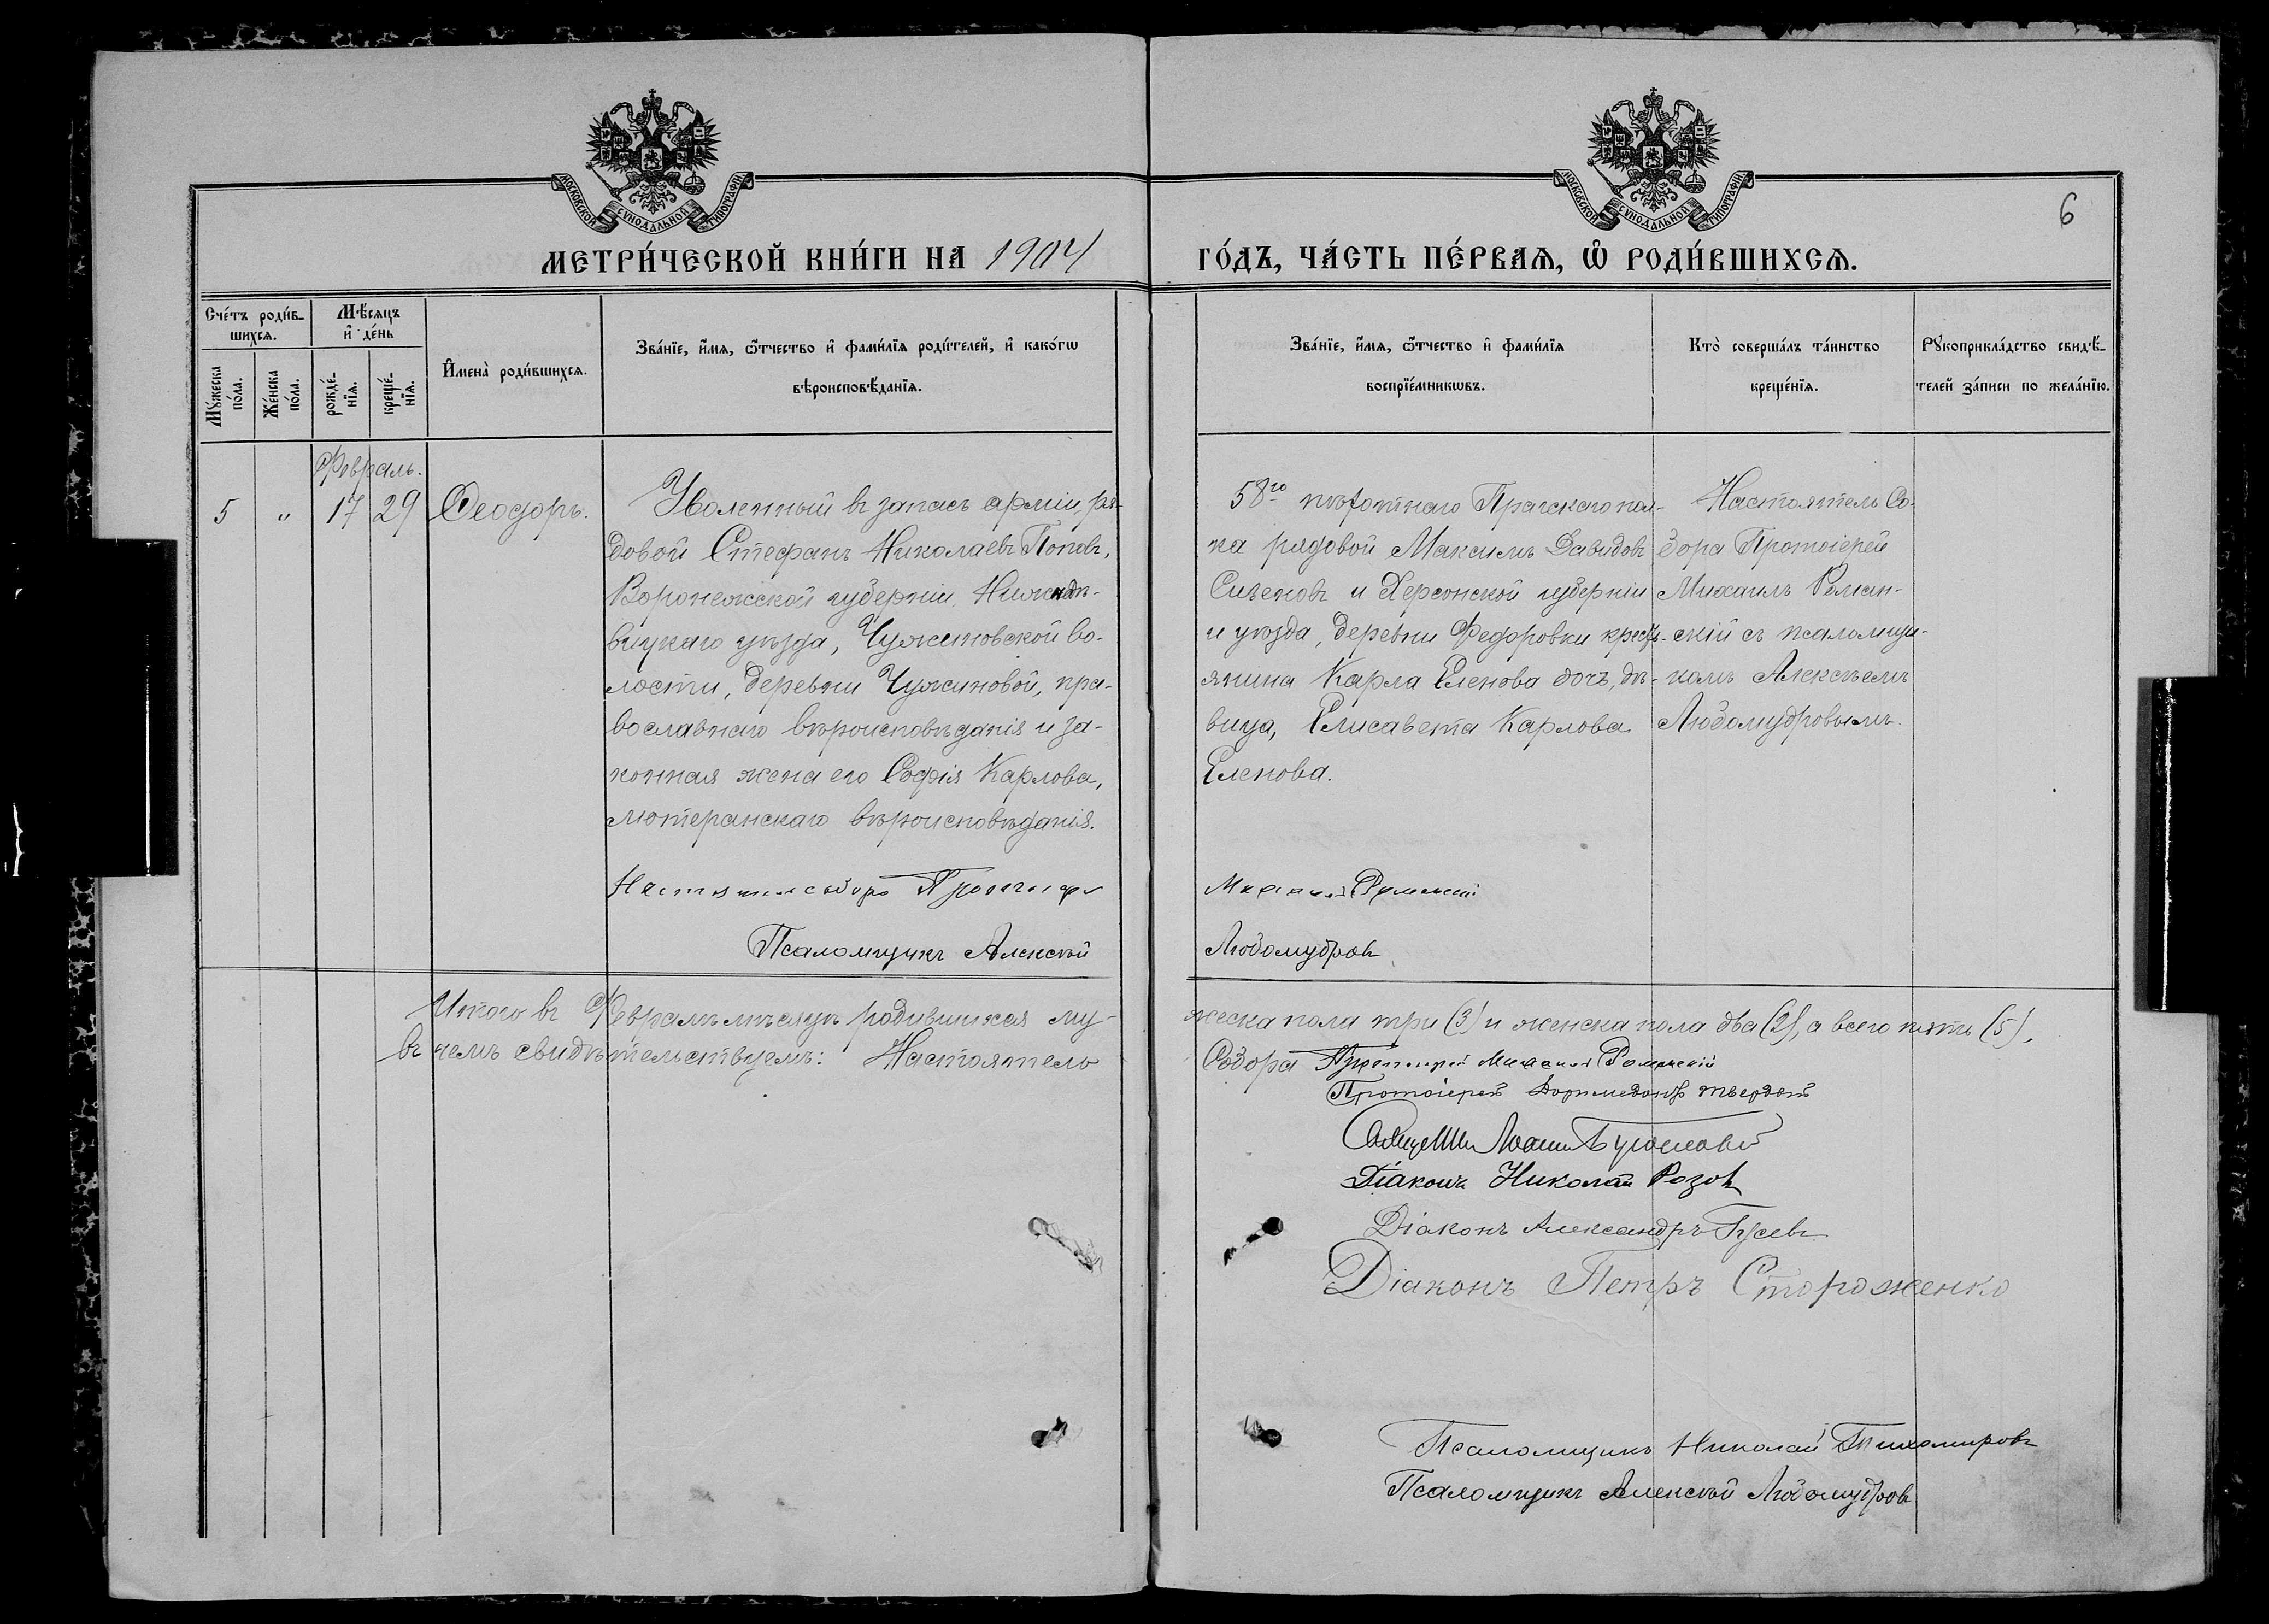 МОСКОВСКОЙ СѴНОДАЛЬНОЙ ТИПОГРАФІИ
МОСКОВСКОЙ СѴНОДАЛЬНОЙ ТИПОГРАФІИ
6
МЕТРИ́ЧЕСКОЙ КНИ́ГИ НА 1904
ГО́ДЪ, ЧА́СТЬ ПЕ́РВАѦ, Ѡ҆ РОДИ́ВШИХСѦ.
Сче́тъ роди́в-
шихсѧ.
Мꙋ́жеска по́ла.
Же́нска по́ла.
Мѣ́сѧцъ
и҆ де́нь
рожде́-
нїѧ.
креще́-
нїѧ.
И҆мена̀ роди́вшихсѧ.
Зва́нїе, и҆́мѧ, ѻ҆́тчество и҆ фами́лїѧ роди́телей, и҆ како́гѡ
вѣроисповѣ́данїѧ.
Зва́нїе, и҆́мѧ, ѻ҆́тчество и҆ фами́лїѧ
воспрїе́мникѡвъ.
Кто̀ соверша́лъ та́инство
креще́нїѧ.
Рꙋкоприкла́дство свидѣ́-
телей за́писи по жела́нїю.
Февраль.
5 " 17 29 Ѳеодоръ.
Уволенный въ запасъ арміи ря-
довой Стефанъ Николаевъ Поповъ,
Воронежской губерніи, Нижнедѣ-
вицкаго уѣзда, Чужиновской во-
лости, деревни Чужиновой, пра-
вославнаго вѣроисповѣданія и за-
конная жена его Софія Карлова,
лютеранскаго вѣроисповѣданія.
58го пѣхотнаго Прагскаго пол-
ка рядовой Максимъ Давидовъ
Сиченовъ и Херсонской губерніи
и уѣзда, деревни Федоровки кресть-
янина Карла Еленова дочь, дѣ-
вица, Елисавета Карлова
Еленова.
Настоятель Со-
бора Протоіерей
Михаилъ Роман-
скій съ псаломщи-
комъ Алексѣемъ
Любомудровымъ.
Настоятель собора Протоіерей
Михаилъ Романскій
Псаломщикъ Алексѣй
Любомудровъ
Итого въ Февралѣ мѣсяцѣ родившихся му-
жеска пола три (3) и женска пола два (2), а всего пять (5),
въ чемъ свидѣтельствуемъ: Настоятель
Собора Протоіерей Михаилъ Романскій
Протоіерей Доримедонтъ Твердой
Діаконъ Николай Розовъ
Діаконъ Александръ Гусевъ
Діаконъ Петръ Стороженко
Псаломщикъ Николай Тихомировъ
Псаломщикъ Алексѣй Любомудровъ